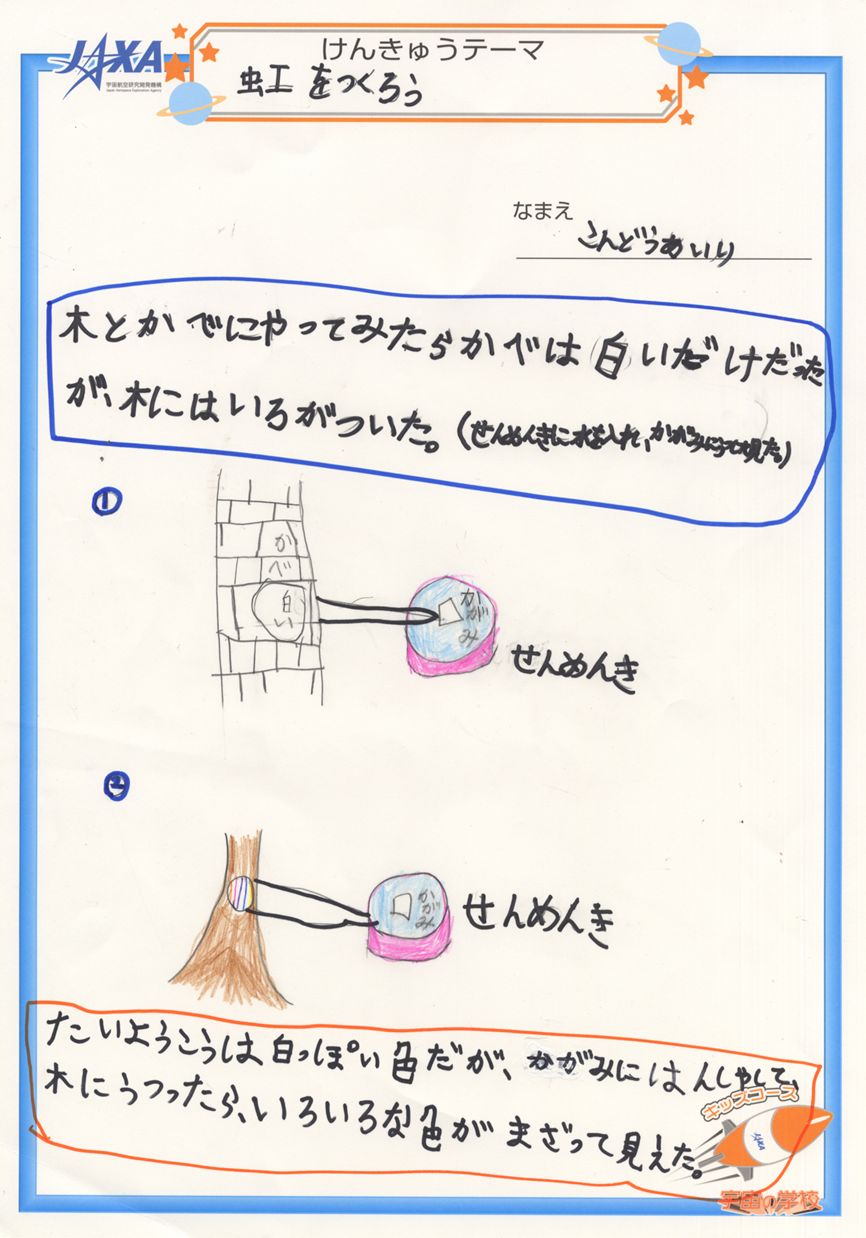 JAXA
宇宙航空研究開発機構
Japan Aerospace Exploration Agency
けんきゅうテーマ
虹をつくろう
なまえ
こんどうあいり
木とかべにやってみたらかべは白いだけだった
が、木にはいろがついた。(せんめんきに水を入れ、かがみにうつして見た。)
①
かべ
白い
かがみ
せんめんき
②
かがみ
せんめんき
たいようこうは白っぽい色だが、かがみにはんしゃして、
木にうつったら、いろいろな色がまざって見えた。
キッズコース
JAXA
宇宙の学校